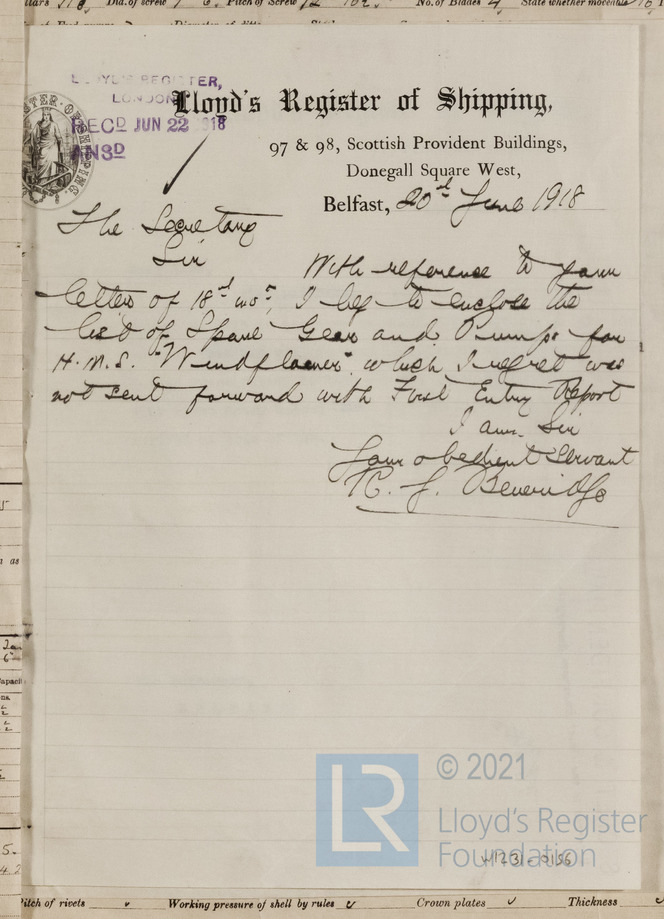 Dia. of screw Pitch of Screw No. of Blades 4 State whether moveable
LLOYD'S REGISTER,
LONDON
REC'D JUN 22 1918
ANS'D
Lloyd's Register of Shipping,
97 & 98, Scottish Provident Buildings,
Donegall Square West,
Belfast, 20th June 1918
The Secretary
Sir
With reference to your
letter of 18th inst, I beg to enclose the
list of Spare Gear and Pumps for
H.M.S. "Windflower" which I regret was
not sent forward with First Entry Report
I am Sir
Your obedient Servant
J. Beveridge
© 2021
LR
Lloyd's Register
Foundation
W1231-0156
Pitch of rivets Working pressure of shell by rules Crown plates Thickness